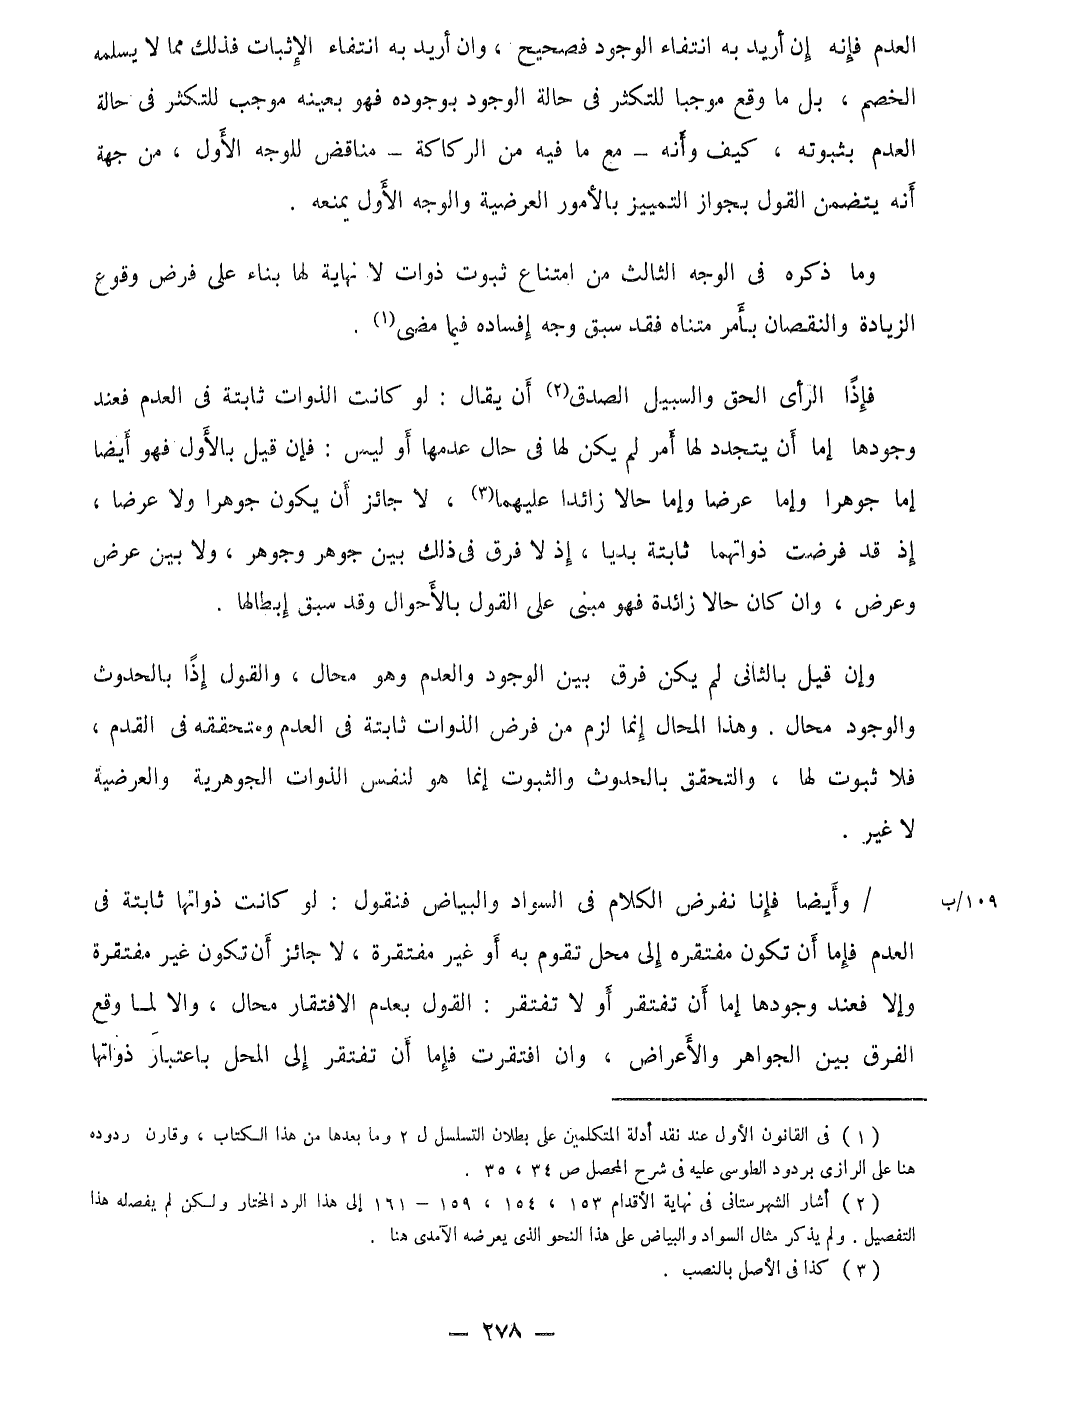 العدم فإنه إن أريد به انتفاء الوجود فصحيح ، وان أريد به انتفاء الإثبات فذلك مما لا يسلمه
الخصم ، بل ما وقع موجبا للتكثر فى حالة الوجود بوجوده فهو بعينه موجب للتكثر فى حالة
العدم بثبوته ، كيف وأنه – مع ما فيه من الركاكة – مناقض للوجه الأول ، من جهة
أنه يتضمن القول بجواز التمييز بالأمور العرضية والوجه الأول يمنعه .
وما ذكره فى الوجه الثالث من امتناع ثبوت ذوات لا نهاية لها بناء على فرض وقوع
الزيادة والنقصان بأمر متناه فقد سبق وجه إفساده فيما مضى(١) .
فإذًا الرأى الحق والسبيل الصدق(٢) أن يقال : لو كانت الذوات ثابتة فى العدم فعند
وجودها إما أن يتجدد لها أمر لم يكن لها فى حال عدمها أو ليس : فإن قيل بالأول فهو أيضا
إما جوهرا وإما عرضا وإما حالا زائدا عليهما(٣) ، لا جائز أن يكون جوهرا ولا عرضا ،
إذ قد فرضت ذواتهما ثابتة بديا ، إذ لا فرق فى ذلك بين جوهر وجوهر ، ولا بين عرض
وعرض ، وان كان حالا زائدة فهو مبنى على القول بالأحوال وقد سبق إبطالها .
وإن قيل بالثانى لم يكن فرق بين الوجود والعدم وهو محال ، والقول إذًا بالحدوث
والوجود محال . وهذا المحال إنما لزم من فرض الذوات ثابتة فى العدم ومتحققه فى القدم ،
فلا ثبوت لها ، والتحقق بالحدوث والثبوت إنما هو لنفس الذوات الجوهرية والعرضية
لا غير .
١٠٩/ب / وأيضا فإنا نفرض الكلام فى السواد والبياض فنقول : لو كانت ذواتها ثابتة فى
العدم فإما أن تكون مفتقره إلى محل تقوم به أو غير مفتقرة ، لا جائز أن تكون غير مفتقرة
وإلا فعند وجودها إما أن تفتقر أو لا تفتقر : القول بعدم الافتقار محال ، والا لما وقع
الفرق بين الجواهر والأعراض ، وان افتقرت فإما أن تفتقر إلى المحل باعتبار ذواتها
(١) فى القانون الأول عند نقد أدلة المتكلمين على بطلان التسلسل ل ٢ وما بعدها من هذا الكتاب ، وقارن ردوده
هنا على الرازى بردود الطوسى عليه فى شرح المحصل ص ٣٤ ، ٣٥ .
(٢) أشار الشهرستانى فى نهاية الأقدام ١٥٣ ، ١٥٤ ، ١٥٩ – ١٦١ إلى هذا الرد المختار ولكن لم يفصله هذا
التفصيل . ولم يذكر مثال السواد والبياض على هذا النحو الذى يعرضه الآمدى هنا .
(٣) كذا فى الأصل بالنصب .
– ٢٧٨ –